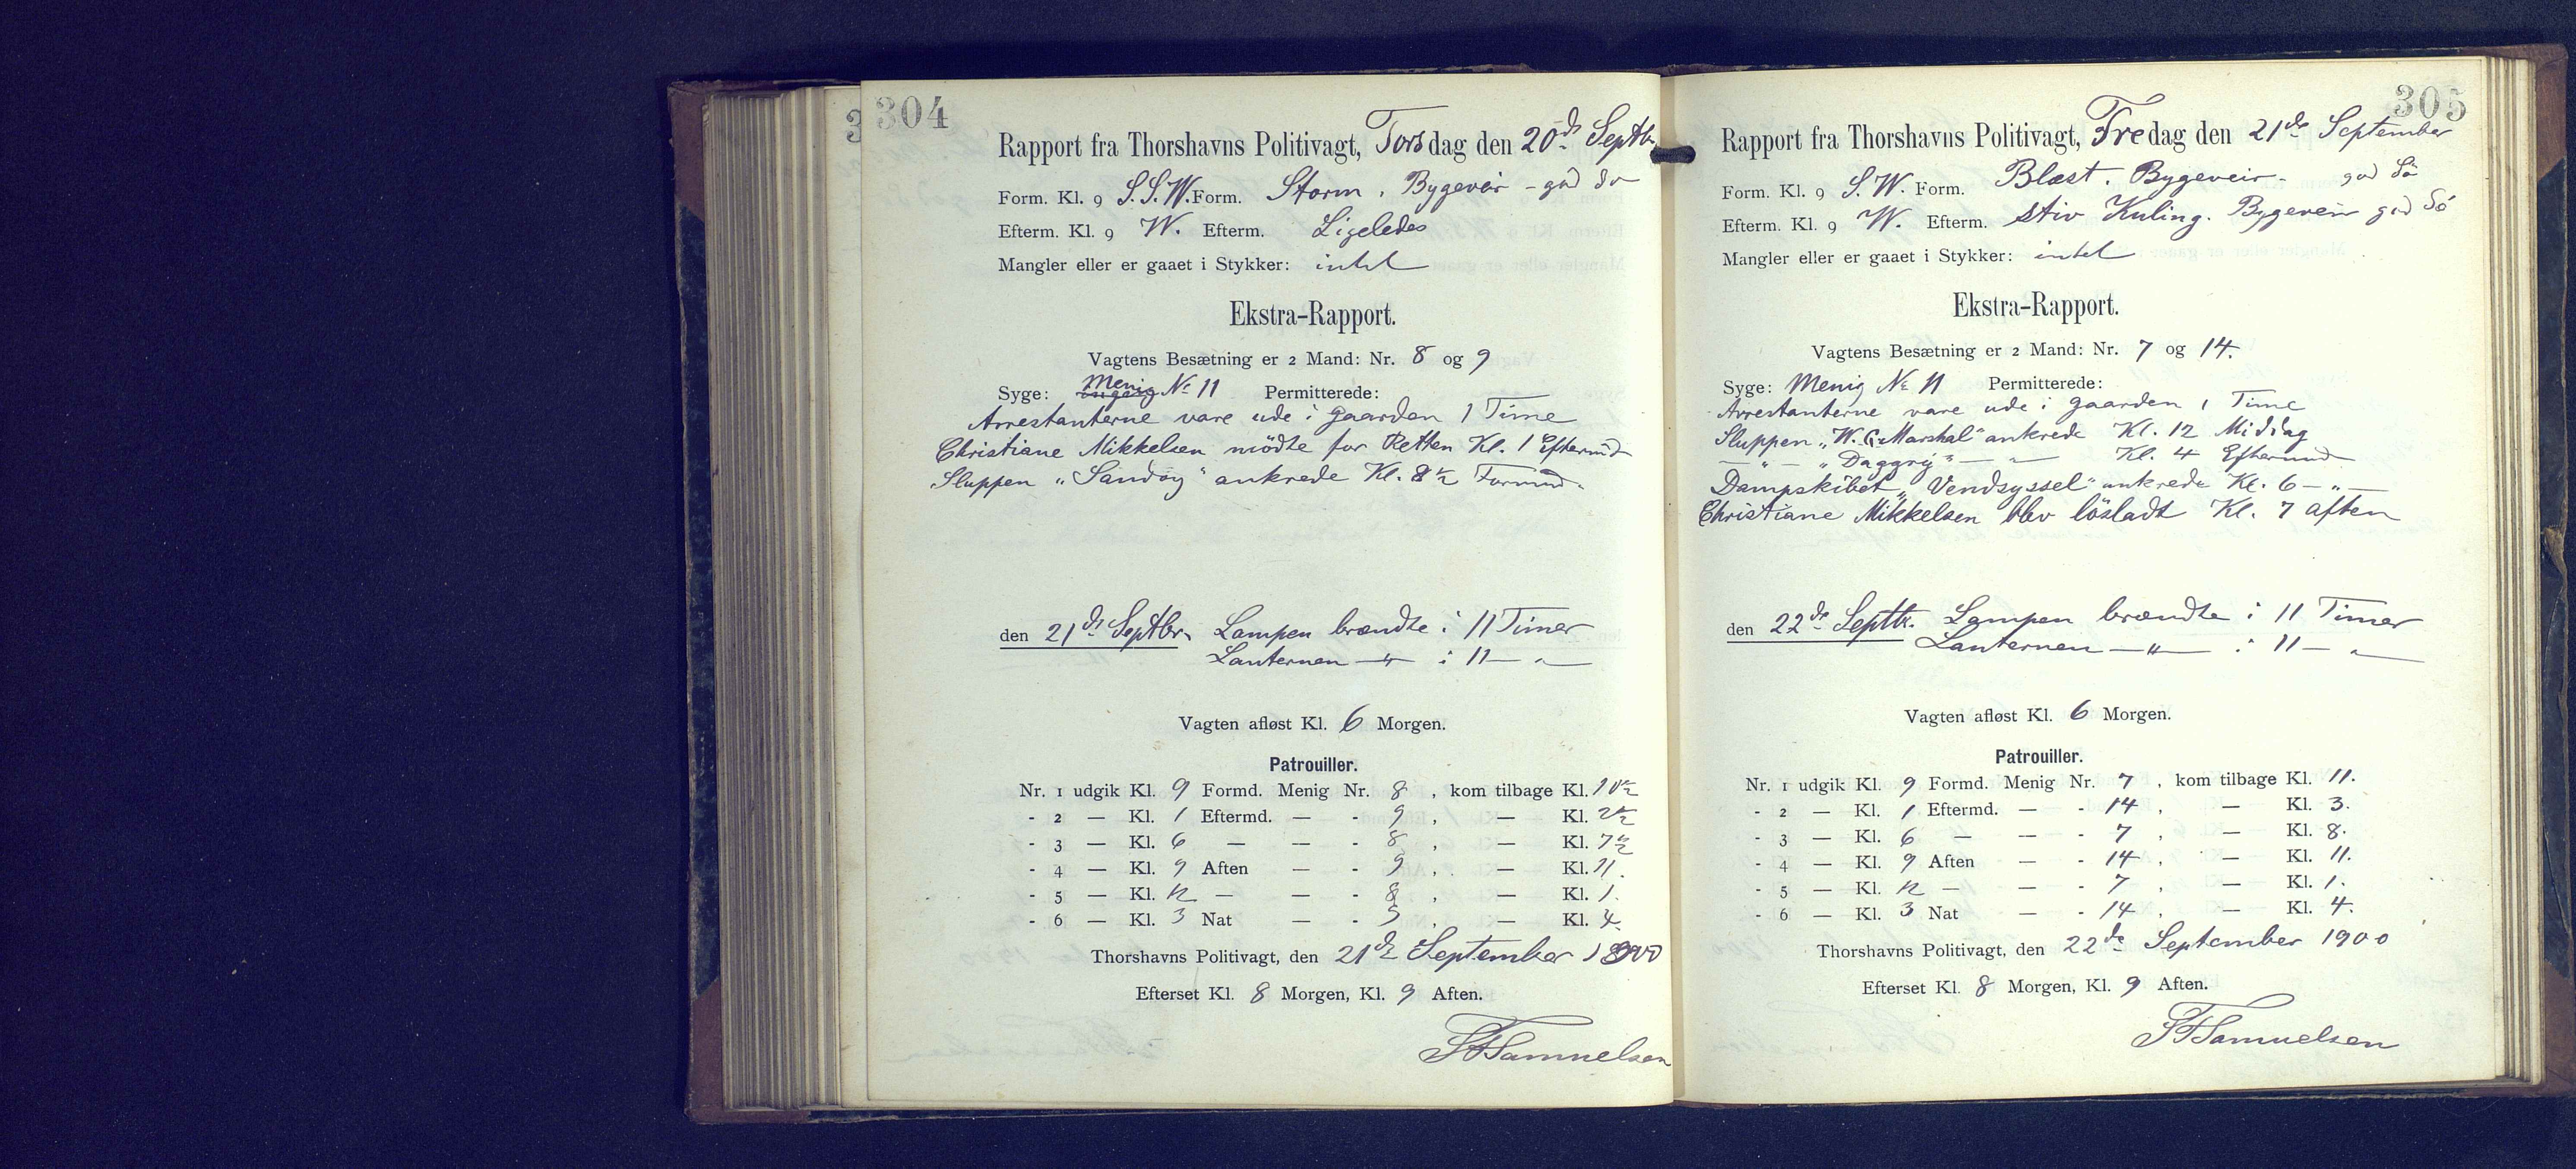 304
Rapport fra Thorshavns Politivagt, Torsdag den 20de Septbr.
Form. Kl. 9 S.S.W. Form. Storm. Bygeveir - god Sö
Efterm. Kl. 9 W. Efterm. Ligeledes
Mangler eller er gaaet i Stykker: intet
Ekstra-Rapport.
Vagtens Besætning er 2 Mand: Nr. 8 og 9
Syge: Menig No 11 Permitterede:
Arrestanterne vare ude i Gaarden 1 Time
Christiane Mikkelsen mödte for Retten Kl. 1 Eftermd
Sluppen „Sandöy" ankrede Kl. 8½ Formd.
den 21de Septbr. Lampen brændte i 11 Timer
Lanternen — " — i 11 — "
Vagten afløst Kl. 6 Morgen.
Patrouiller.
Nr. 1 udgik Kl. 9 Formd. Menig Nr. 8, kom tilbage Kl. 10½
- 2 — Kl. 1 Eftermd. — - 9, — Kl. 2½
- 3 — Kl. 6 — — - 8, — Kl. 7½
- 4 — Kl. 9 Aften — - 9, — Kl. 11.
- 5 — Kl. 12 — — - 8, — Kl. 1.
- 6 — Kl. 3 Nat — - , — Kl. 4.
Thorshavns Politivagt, den 21de September 1900
Efterset Kl. 8 Morgen, Kl. 9 Aften.
Samuelsen
305
Rapport fra Thorshavns Politivagt, Fredag den 21de September
Form. Kl. 9 S.W. Form. Blæst. Bygeveir - god Sö
Efterm. Kl. 9 W. Efterm. Stiv Kuling. Bygeveir god Sö
Mangler eller er gaaet i Stykker: intet
Ekstra-Rapport.
Vagtens Besætning er 2 Mand: Nr. 7 og 14.
Syge: Menig No 11 Permitterede:
Arrestanterne vare ude i Gaarden 1 Time
Sluppen „W. G. Marshal" ankrede Kl. 12 Middag
— " — „Daggry" — " — Kl. 4 Eftermd
Dampskibet „Vendsyssel" ankrede Kl. 6 — " —
Christiane Mikkelsen blev lösladt Kl. 7 Aften
den 22de Septbr. Lampen brændte i 11 Timer
Lanternen — " — i 11 — "
Vagten afløst Kl. 6 Morgen.
Patrouiller.
Nr. 1 udgik Kl. 9 Formd. Menig Nr. 7, kom tilbage Kl. 11.
- 2 — Kl. 1 Eftermd. — - 14, — Kl. 3.
- 3 — Kl. 6 — — - 7, — Kl. 8.
- 4 — Kl. 9 Aften — - 14, — Kl. 11.
- 5 — Kl. 12 — — - 7, — Kl. 1.
- 6 — Kl. 3 Nat — - 14, — Kl. 4.
Thorshavns Politivagt, den 22de September 1900
Efterset Kl. 8 Morgen, Kl. 9 Aften.
Samuelsen